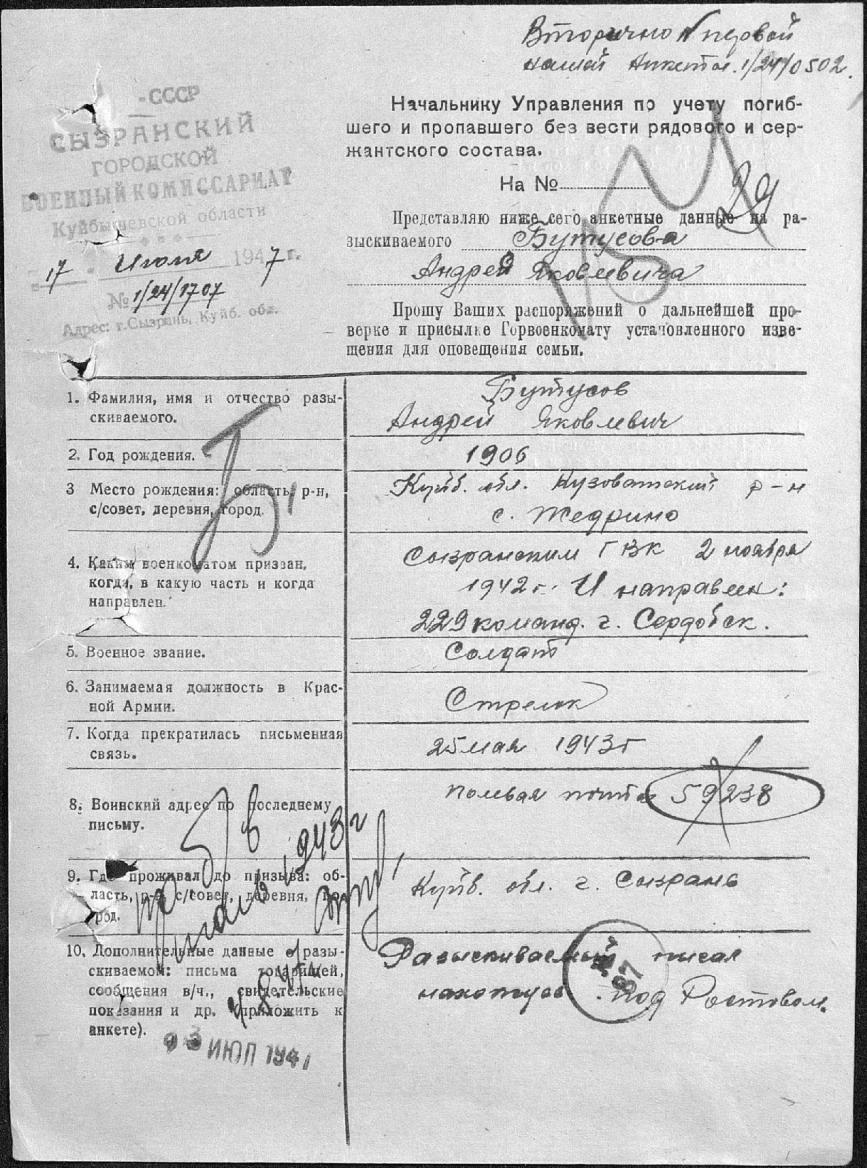 Вторично
нашей Анкеты 1/24/0502.
-СССР
СЫЗРАНСКИЙ
ГОРОДСКОЙ
ВОЕННЫЙ КОМИССАРИАТ
Куйбышевской области
17 Июля 1947 г.
№ 1/24/1707
Адрес: г. Сызрань, Куйб. обл.
Начальнику Управления по учету погиб-
шего и пропавшего без вести рядового и сер-
жантского состава.
На №
29
Представляю ниже сего анкетные данные на ра-
зыскиваемого Бутусова
Андрея Яковлевича
Прошу Ваших распоряжений о дальнейшей про-
верке и присылке Горвоенкомату установленного изве-
щения для оповещения семьи.
1. Фамилия, имя и отчество разы-
скиваемого.
Бутусов
Андрей Яковлевич
2. Год рождения.
1906
3 Место рождения: область, р-н,
с/совет, деревня, город.
Куйб. обл. Кузоватский р-н
с. Жедрино
4. Каким военкоматом призван,
когда, в какую часть и когда
направлен.
Сызранским ГВК 2 ноября
1942 г. И направлен:
229 команд. г. Сердобск.
5. Военное звание.
Солдат
6. Занимаемая должность в Крас-
ной Армии.
Стрелок
7. Когда прекратилась письменная
связь.
25 мая 1943 г
8. Воинский адрес по последнему
письму.
Полевая почта 59238
9. Где проживал до призыва: об-
ласть, р-н, с/совет, деревня, го-
род.
Куйб. обл. г. Сызрань
10. Дополнительные данные о разы-
скиваемом: письма товарищей,
сообщения в/ч., свидетельские
показания и др. (приложить к
анкете).
Разыскиваемый писал
нахотусь под Ростовом.
пр б/в
1943 г
87
ИЮЛ 194